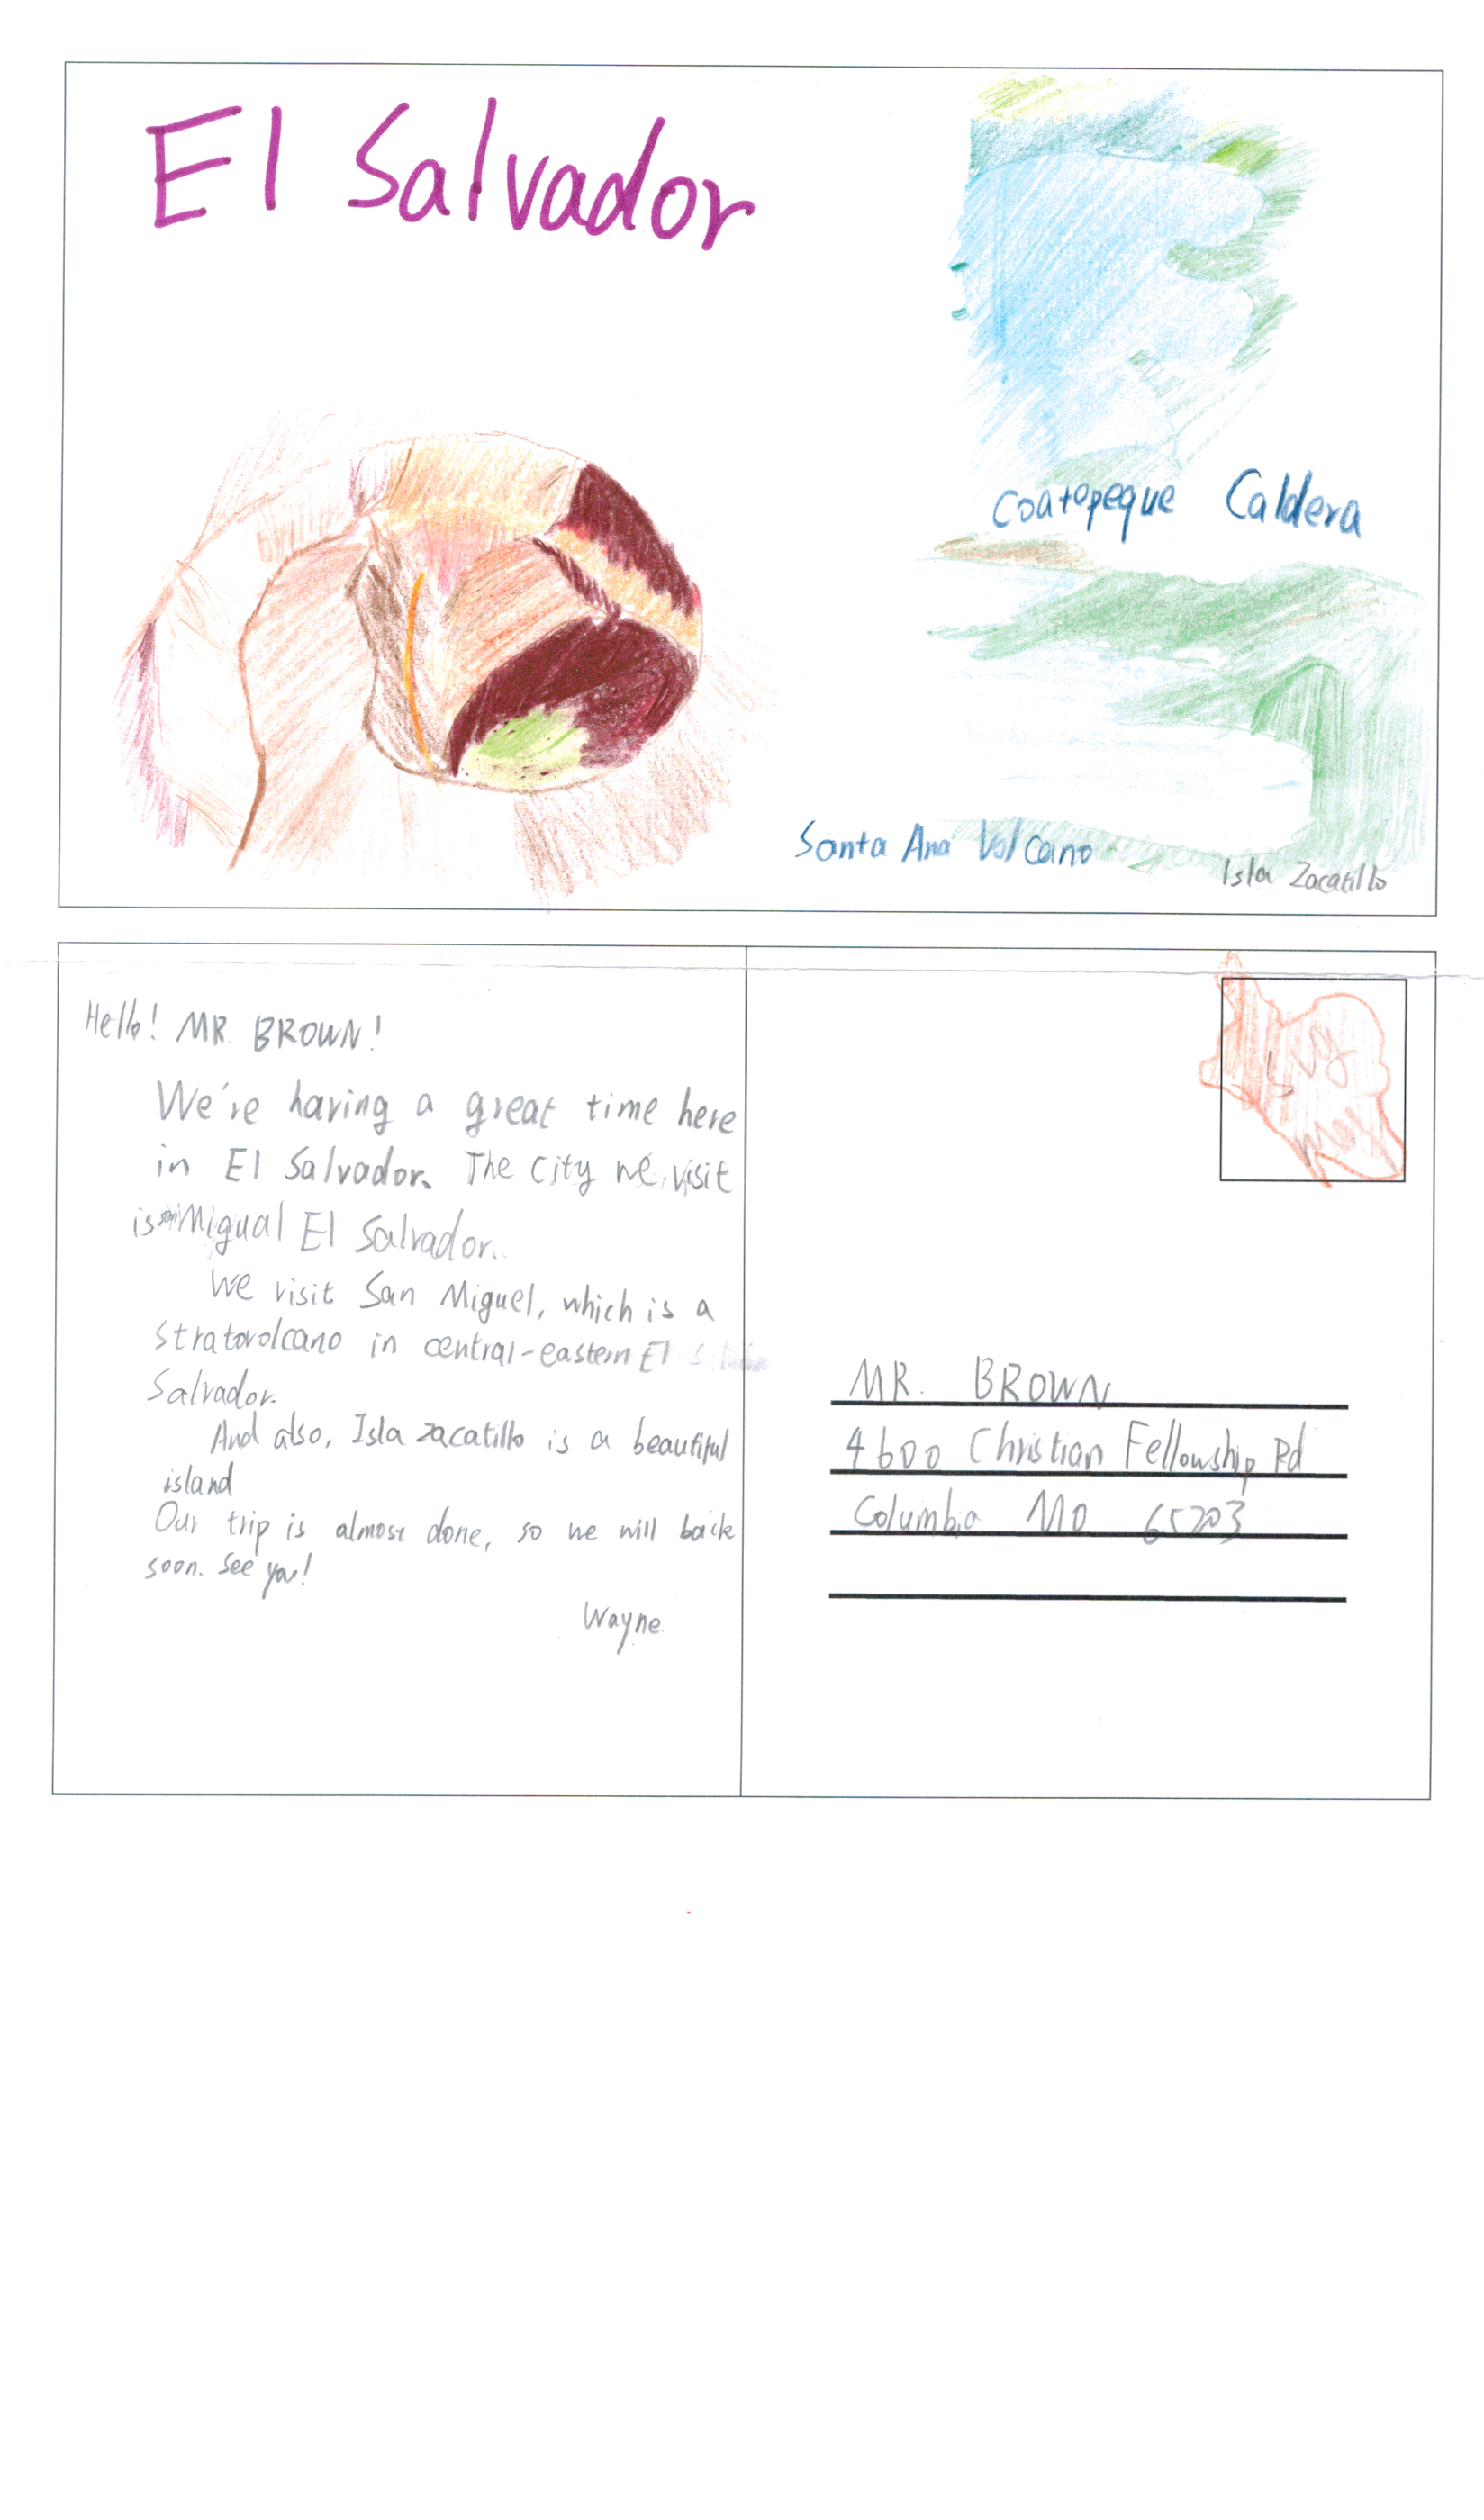 El Salvador
Coatepeque Caldera
Santa Ana Volcano
Isla Zacatillo
Hello! MR. BROWN!
We're having a great time here
in El Salvador. The city we visit
is san Migual El Salvador.
We visit San Miguel, which is a
Stratovolcano in central-eastern El
Salvador.
And also, Isla zacatillo is a beautiful
island
Our trip is almost done, so we will back
soon. See you!
Wayne
MR. BROWN
4600 Christian Fellowship Rd
Columbia MO 65203